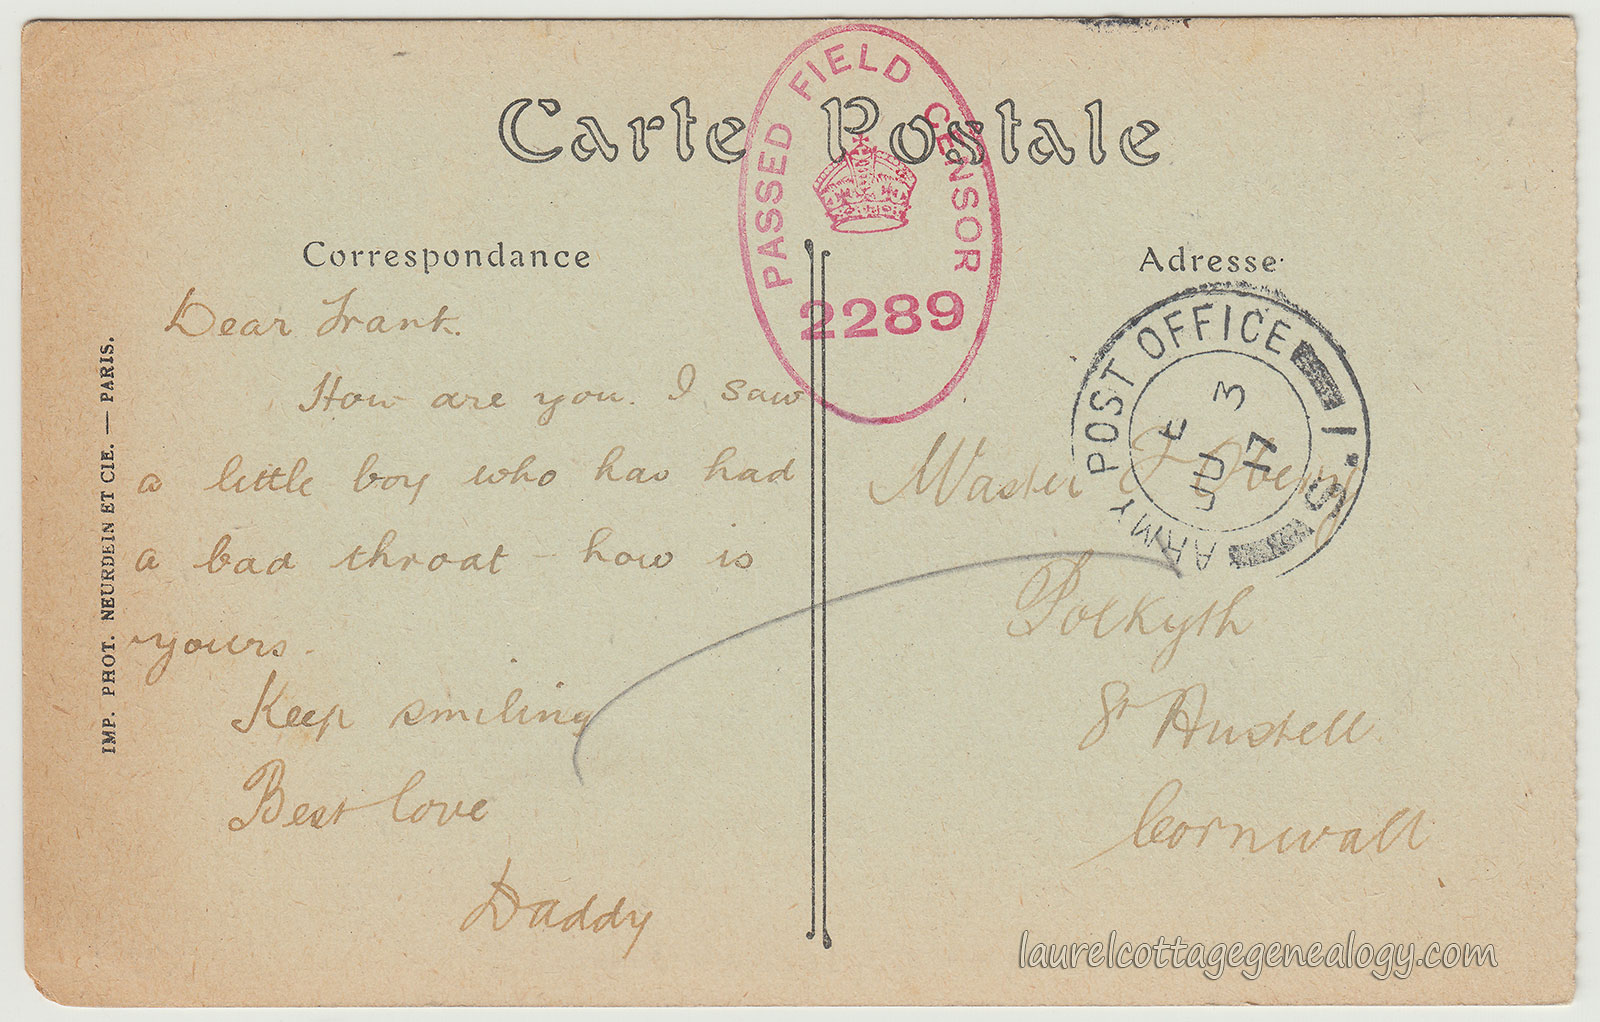 Carte Postale
PASSED FIELD CENSOR
2289
Correspondance
Adresse
Dear Frank.
How are you. I saw
a little boy who has had
a bad throat – how is
yours.
Keep smiling
Best love
Daddy
ARMY POST OFFICE I.S.
E
JU 3
17
Master F
Polkyth
St Austell
Cornwall
IMP. PHOT. NEURDEIN ET CIE. — PARIS.
laurelcottagegenealogy.com